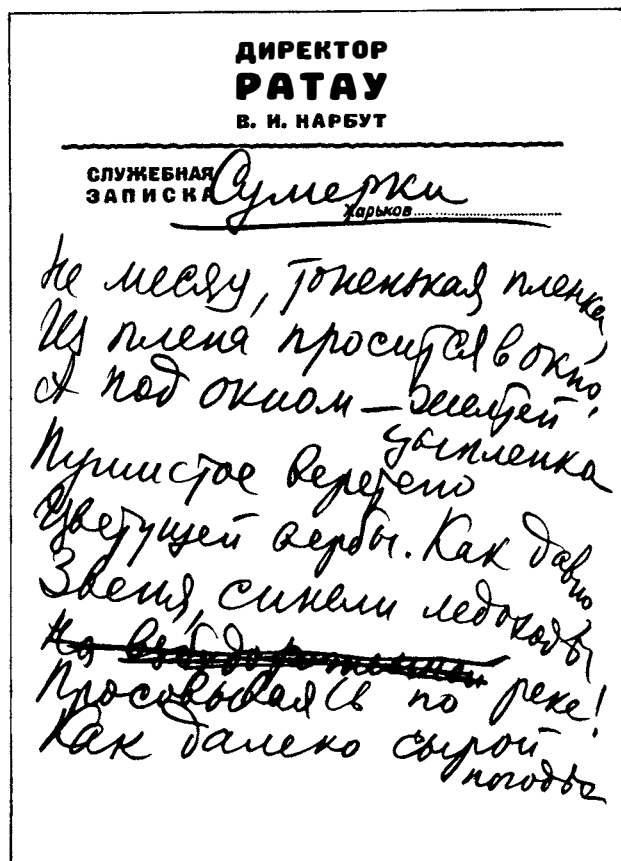 ДИРЕКТОР
РАТАУ
В. И. НАРБУТ
СЛУЖЕБНАЯ
ЗАПИСКА
Сумерки
Харьков
Не месяц, тоненькая пленка
Из плена просится в окно,
А под окном — желтей
цыпленка
Пушистое веретено
Цветущей вербы. Как давно,
Звеня, синели ледоходы
На
Просовываясь по реке!
Как далеко сырой
погоды